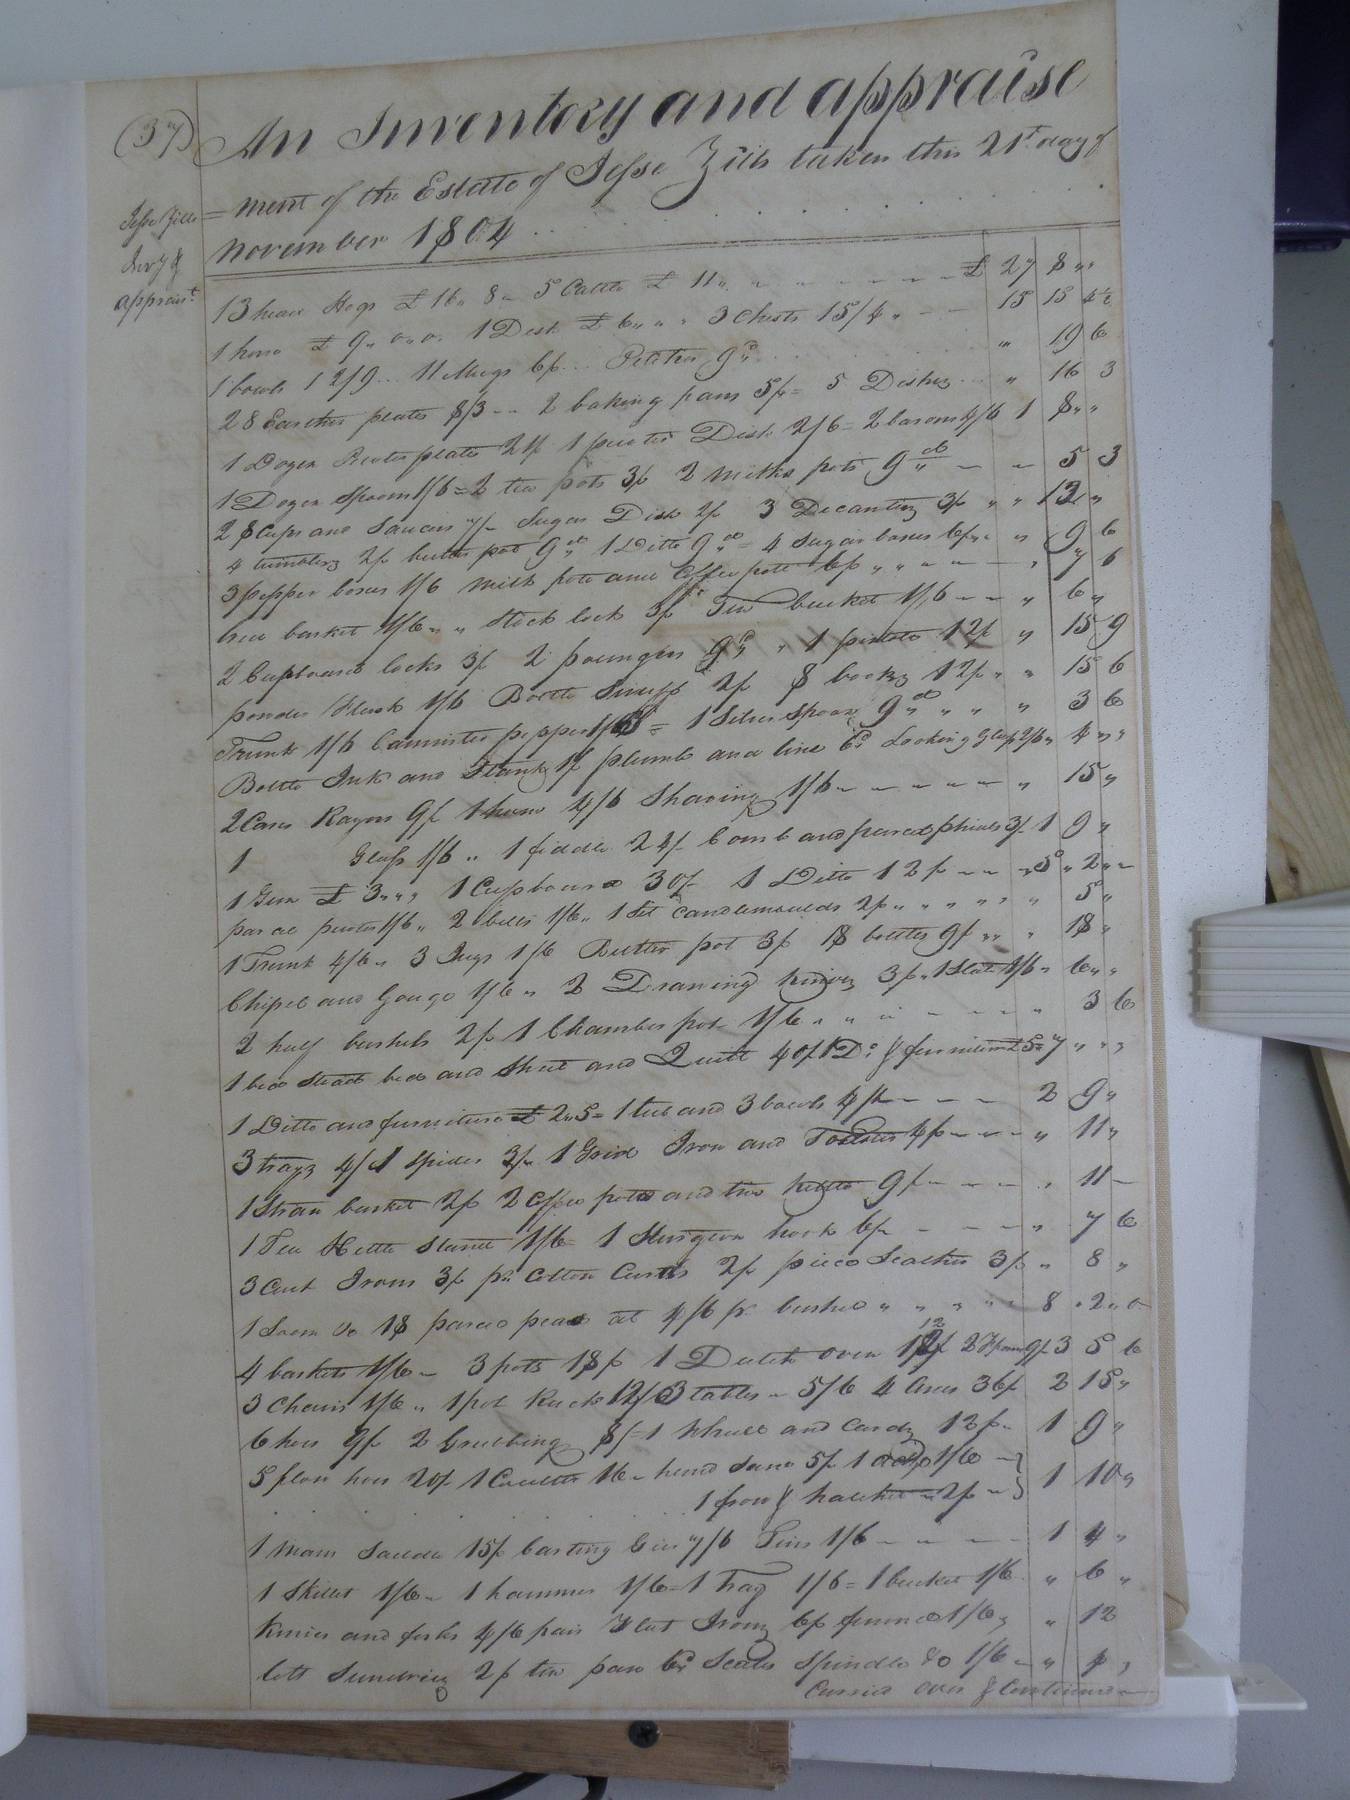 (37)
An Inventory and appraise
= ment of the Estate of Jesse Zills taken this 21st day of
November 1804
Jesse Zills
Invy &
appraist.
13 head Hogs £16,, 8 – 5 Cattle £11 ,, £ 27 8 ,,
1 horse £9,, 0,, 0. 1 Desk £6,, ,, 3 Chests 15/4 15 15 4
1 bowls 12/9 .. 11 Mugs 6/ .. Pitcher 9d ,, 19 6
28 Earthen plates 8/3 – 2 baking pans 5/ = 5 Dishes ,, 16 3
1 Dozen Pewter plates 24/ 1 pewter Dish 2/6 = 2 basons 4/6 1 8 ,,
1 Dozen Spoons 1/6 = 2 tea pots 3/ 2 milk pots 9d ,, 5 3
28 Cups and Saucers 7/ Sugar Dish 2/ 3 Decanters 3/ ,, 12 ,,
4 tumblers 2/ butter pot 9d 1 Ditto 9d = 4 Sugar boxes 6/ ,, 9 6
3 pepper boxes 1/6 milk pots and Coffee pott 6/ ,, 7 6
bread basket 1/6 ,, Stock lock 3/ Tin bucket 1/6 ,, 6 ,,
2 Cupboard locks 3/ 2 poringers 9d ,, 1 pistole 12/ ,, 15 9
powder flask 1/6 Bottle Snuff 2/ 8 books 12/ ,, 15 6
Trunk 1/6 Cannister pepper 1/6 = 1 Silver Spoon 9d ,, 3 6
Bottle Ink and Stand 1/ plumb and line 6d Looking Glass 2/6 ,, 4 ,,
2 Cases Razors 9/ 1 hone 4/6 Shaving 1/6 ,, 15 ,,
1 Glass 1/6 ,, 1 fiddle 24/ Comb and parcel phials 3/ 1 9 ,,
1 Gun £3 ,, ,, 1 Cupboard 30/ 1 Ditto 12/ 5 ,, 2 ,,
parcel pewter 1/6 ,, 2 bells 1/6 ,, 1 Set Candlemoulds 2/ ,, 5 ,,
1 Trunk 4/6 ,, 3 Jugs 1/6 Butter pot 3/ 18 bottles 9/ ,, 18 ,,
Chisel and Gouge 1/6 ,, 2 Drawing knives 3/ ,, 1 Slate 1/6 ,, 6 ,,
2 half bushels 2/ 1 Chamber pot 1/6 ,, 3 6
1 bed Stead bed and Sheet and Quilt 40/ 1 Do & furniture £5 = 7 ,, ,,
1 Ditto and furniture £2,,5 = 1 tub and 3 bowls 4/ 2 9 ,,
3 trays 4/ 1 Spider 3/ 1 Grid Iron and Toaster 4/ ,, 11 ,,
1 Straw basket 2/ 2 Coffee potts and two kettle 9/ ,, 11 –
1 Tea Kettle Stand 1/6 = 1 Sturgeon hook 6/ ,, 7 6
3 Cut Irons 3/ pr. Cotton Cards 2/ piece Leather 3/ ,, 8 ,,
1 Loom do 18 parcel peas at 4/6 pr. bushel 8 ,, 2 ,, 6
4 baskets 1/6 – 3 potts 18/ 1 Dutch oven 12/ 2 F pans 9/ 3 5 6
3 Chairs 1/6 ,, 1 pot Rack 12/ 3 tables – 5/6 4 Axes 36/ 2 15 ,,
6 hoes 9/ 2 Grubbing 8/ = 1 Wheel and Cards 12/ 1 9 ,,
5 plow hoes 20/ 1 Coulter 16 – hand Saw 5/ 1 adz 1/6
1 frow & hatchet 2/ 1 10 ,,
1 mans Saddle 15/ Casting Gin 7/6 Tins 1/6 1 4 ,,
1 Skillet 1/6 – 1 hammer 1/6 = 1 Tray 1/6 = 1 bucket 1/6 ,, 6 ,,
Knives and forks 4/6 pair Flat Irons 6/ 1/6 ,, 12
lott Sundries 2/ tin pan 6d Scales Spindle &c 1/6 ,,
Carried over & Continued